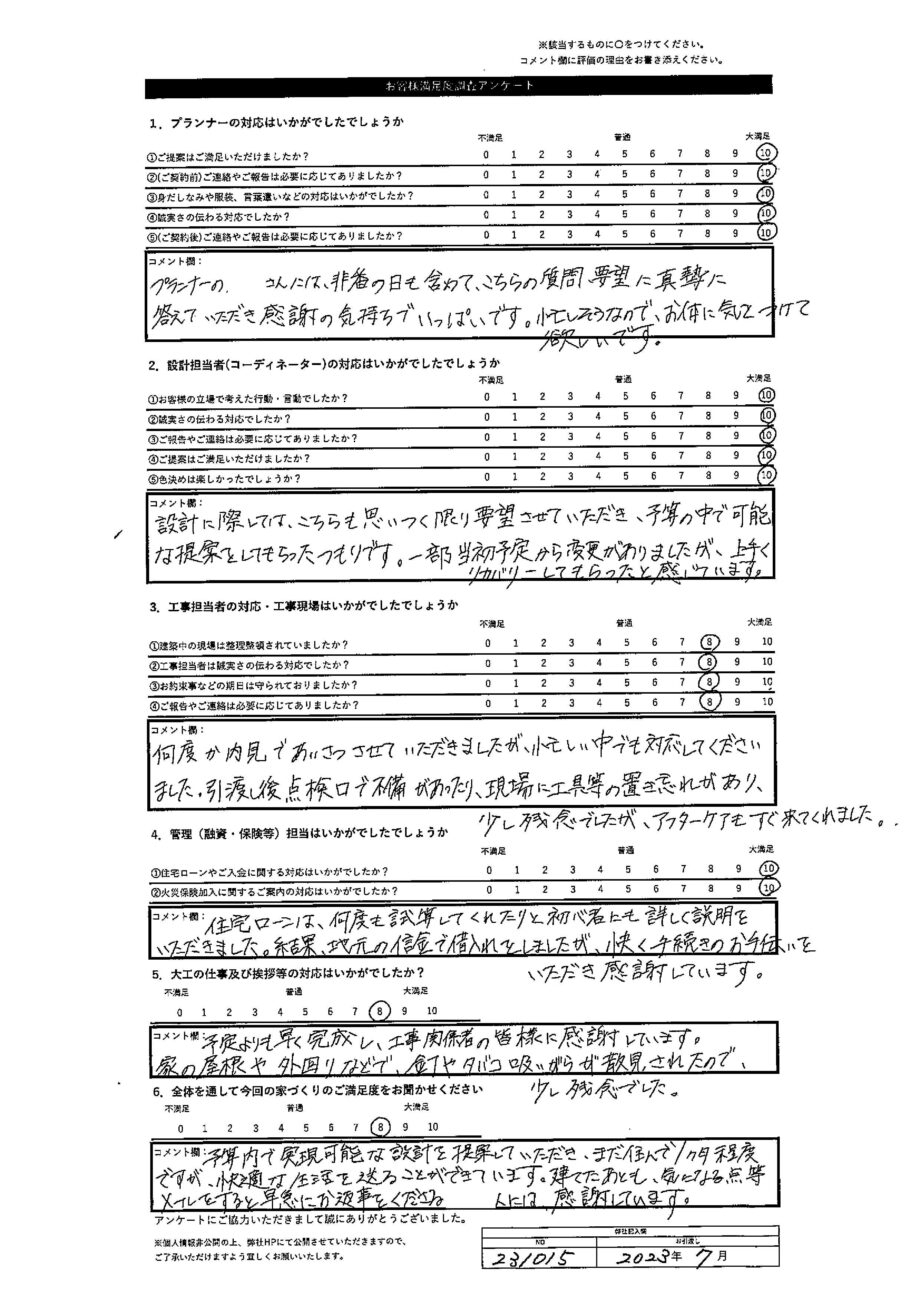 ※該当するものに〇をつけてください。
コメント欄に評価の理由をお書き添えください。
お客様満足度調査アンケート
1．プランナーの対応はいかがでしたでしょうか
不満足 普通 大満足
①ご提案はご満足いただけましたか？ 0 1 2 3 4 5 6 7 8 9 10
②(ご契約前)ご連絡やご報告は必要に応じてありましたか？ 0 1 2 3 4 5 6 7 8 9 10
③身だしなみや服装、言葉遣いなどの対応はいかがでしたか？ 0 1 2 3 4 5 6 7 8 9 10
④誠実さの伝わる対応でしたか？ 0 1 2 3 4 5 6 7 8 9 10
⑤(ご契約後)ご連絡やご報告は必要に応じてありましたか？ 0 1 2 3 4 5 6 7 8 9 10
コメント欄：
プランナーの、 さんには、非番の日も含めて、こちらの質問要望に真摯に
答えていただき感謝の気持ちでいっぱいです。忙しそうなので、お体に気をつけて
欲しいです。
2．設計担当者(コーディネーター)の対応はいかがでしたでしょうか
不満足 普通 大満足
①お客様の立場で考えた行動・言動でしたか？ 0 1 2 3 4 5 6 7 8 9 10
②誠実さの伝わる対応でしたか？ 0 1 2 3 4 5 6 7 8 9 10
③ご報告やご連絡は必要に応じてありましたか？ 0 1 2 3 4 5 6 7 8 9 10
④ご提案はご満足いただけましたか？ 0 1 2 3 4 5 6 7 8 9 10
⑤色決めは楽しかったでしょうか？ 0 1 2 3 4 5 6 7 8 9 10
コメント欄：
設計に際しては、こちらも思いつく限り要望させていただき、予算の中で可能
な提案をしてもらったつもりです。一部当初予定から変更がありましたが、上手く
リカバリーしてもらったと感じています。
3．工事担当者の対応・工事現場はいかがでしたでしょうか
不満足 普通 大満足
①建築中の現場は整理整頓されていましたか？ 0 1 2 3 4 5 6 7 8 9 10
②工事担当者は誠実さの伝わる対応でしたか？ 0 1 2 3 4 5 6 7 8 9 10
③お約束事などの期日は守られておりましたか？ 0 1 2 3 4 5 6 7 8 9 10
④ご報告やご連絡は必要に応じてありましたか？ 0 1 2 3 4 5 6 7 8 9 10
コメント欄：
何度か内見であいさつさせていただきましたが、忙しい中でも対応してください
ました。引渡し後点検口で不備があったり、現場に工具等の置き忘れがあり、
少し残念でしたが、アフターケアもすぐ来てくれました。
4．管理（融資・保険等）担当はいかがでしたでしょうか
不満足 普通 大満足
①住宅ローンやご入会に関する対応はいかがでしたか？ 0 1 2 3 4 5 6 7 8 9 10
②火災保険加入に関するご案内の対応はいかがでしたか？ 0 1 2 3 4 5 6 7 8 9 10
コメント欄：住宅ローンは、何度も試算してくれたりと初心者にも詳しく説明を
いただきました。結果、地元の信金で借入れをしましたが、快く手続きのお手伝いを
いただき感謝しています。
5．大工の仕事及び挨拶等の対応はいかがでしたか？
不満足 普通 大満足
0 1 2 3 4 5 6 7 8 9 10
コメント欄：予定よりも早く完成し、工事関係者の皆様に感謝しています。
家の屋根や外回りなどで、釘やタバコ吸いがらが散見されたので、
少し残念でした。
6．全体を通して今回の家づくりのご満足度をお聞かせください
不満足 普通 大満足
0 1 2 3 4 5 6 7 8 9 10
コメント欄：予算内で実現可能な設計を提案していただき、まだ住んで1ヶ月程度
ですが、快適な生活を送ることができています。建てたあとも、気になる点等
メールをすると早急にお返事をくださる 人には、感謝しています。
アンケートにご協力いただきまして誠にありがとうございました。
※個人情報非公開の上、弊社HPにて公開させていただきますので、
ご了承いただけますよう宜しくお願いいたします。
弊社記入欄
NO お引渡し
231015 2023年 7月